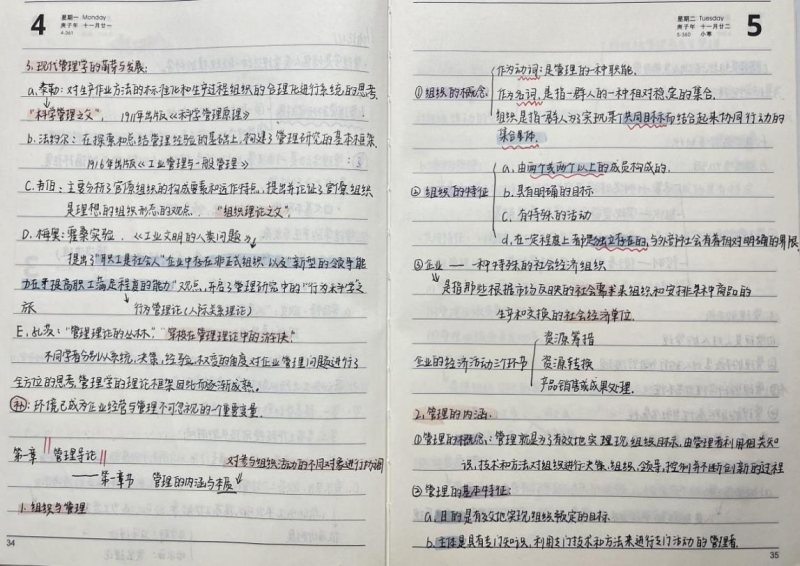 4
星期一 Monday
庚子年 十一月廿一
4-361
3. 现代管理学的萌芽与发展:
a. 泰勒: 对生产作业方法的标准化和生产过程组织的合理化进行系统的思考.
“科学管理之父”, 1911年出版《科学管理原理》
b. 法约尔: 在探索和总结管理经验的基础上, 构建了管理研究的基本框架.
1916年出版《工业管理与一般管理》
C. 韦伯: 主要分析了官僚组织的构成要素和运作特征, 提出并论证了官僚组织
是理想的组织形态的观点. “组织理论之父”.
D. 梅奥: 霍桑实验. 《工业文明的人类问题》
提出了“职工是社会人”“企业中存在非正式组织”以及“新型的领导能
力在于提高职工满足程度的能力”观点, 开启了管理研究中的“行为科学”之
旅 行为管理论(人际关系理论)
E. 孔茨: “管理理论的丛林”,
不同学者分别从系统, 决策, 经验, 权变的角度对企业管理问题进行了
全方位的思考, 管理学的理论框架因此而逐渐成熟.
补: 环境已成为企业经营与管理不可忽视的一个重要变量.
第一章 管理导论 对参与组织活动的不同对象进行协调
——第一章节 管理的内涵与本质
1. 组织与管理
34
5
星期二 Tuesday
庚子年 十一月廿二
5-360 小寒
① 组织的概念
作为动词: 是管理的一种职能.
作为名词: 是指一群人的一种相对稳定的集合.
组织是指一群人为了实现某个共同目标而结合起来协同行动的
集合体.
② 组织的特征
a. 由两个或两个以上的成员构成的.
b. 具有明确的目标
C. 有特殊的活动
d. 在一定程度上都是独立存在的, 与外部社会有着相对明确的界限.
③ 企业 — 一种特殊的社会经济组织
是指那些根据市场反映的社会需求来组织和安排某种商品的
生产和交换的社会经济单位.
企业的经济活动三个环节
资源筹措
资源转换
产品销售或成果处理.
2. 管理的内涵:
① 管理的概念: 管理就是为了有效地实现组织目标, 由管理者利用相关知
识, 技术和方法对组织进行决策, 组织, 领导, 控制并不断创新的过程
② 管理的基本特征:
a. 目的是有效地实现组织预定的目标.
b. 主体是具有专门知识, 利用专门技术和方法来进行专门活动的管理者.
35